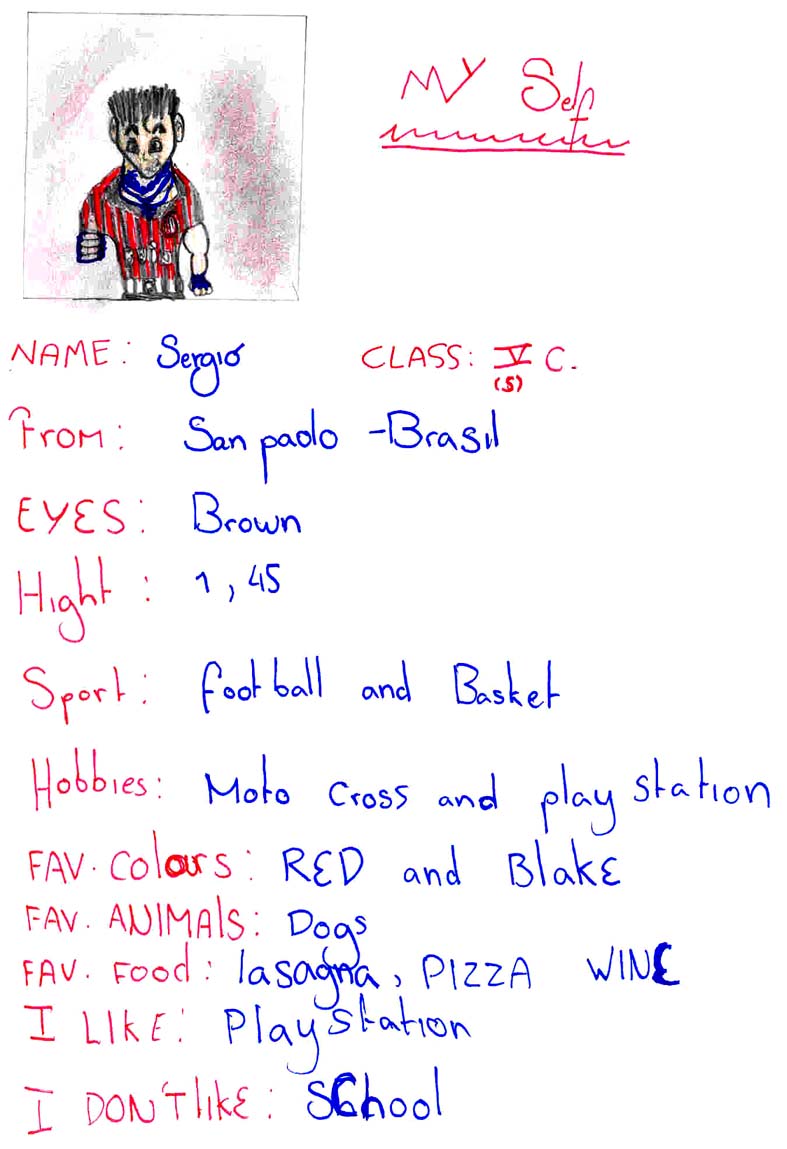 My Self
NAME: Sergio CLASS: V C.
(5)
From: San paolo - Brasil
EYES: Brown
Hight: 1,45
Sport: football and Basket
Hobbies: Moto Cross and play station
FAV. Colours: RED and Blake
FAV. ANIMAls: Dogs
FAV. Food: lasagna, PIZZA WINE
I LIKE: Play station
I DON'T lIKE: SChool